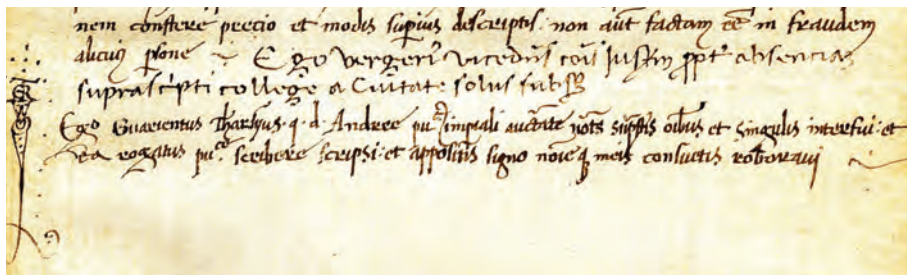 nem constere precio et modis supius descriptis. non aut factam ee in fraudem
alicuius psone Ego vergeri vicedns cois Justin ppt absencia
suprascripti college a Civitate solus subss
Ego Guarientus Tharsius. q. d. Andree pu. impiali auctate nots supstis oibus et singulis interfui: et
ea rogatus pu. scribere scripsi: et appositis signo noie q meis consuetis roboravi